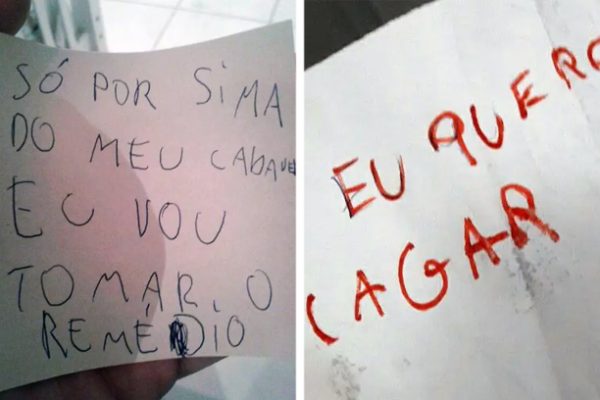 SÓ POR SIMA
DO MEU CADAVER
EU VOU
TOMAR O
REMÉDIO
EU QUERO
CAGAR